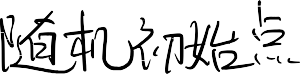 随机初始点